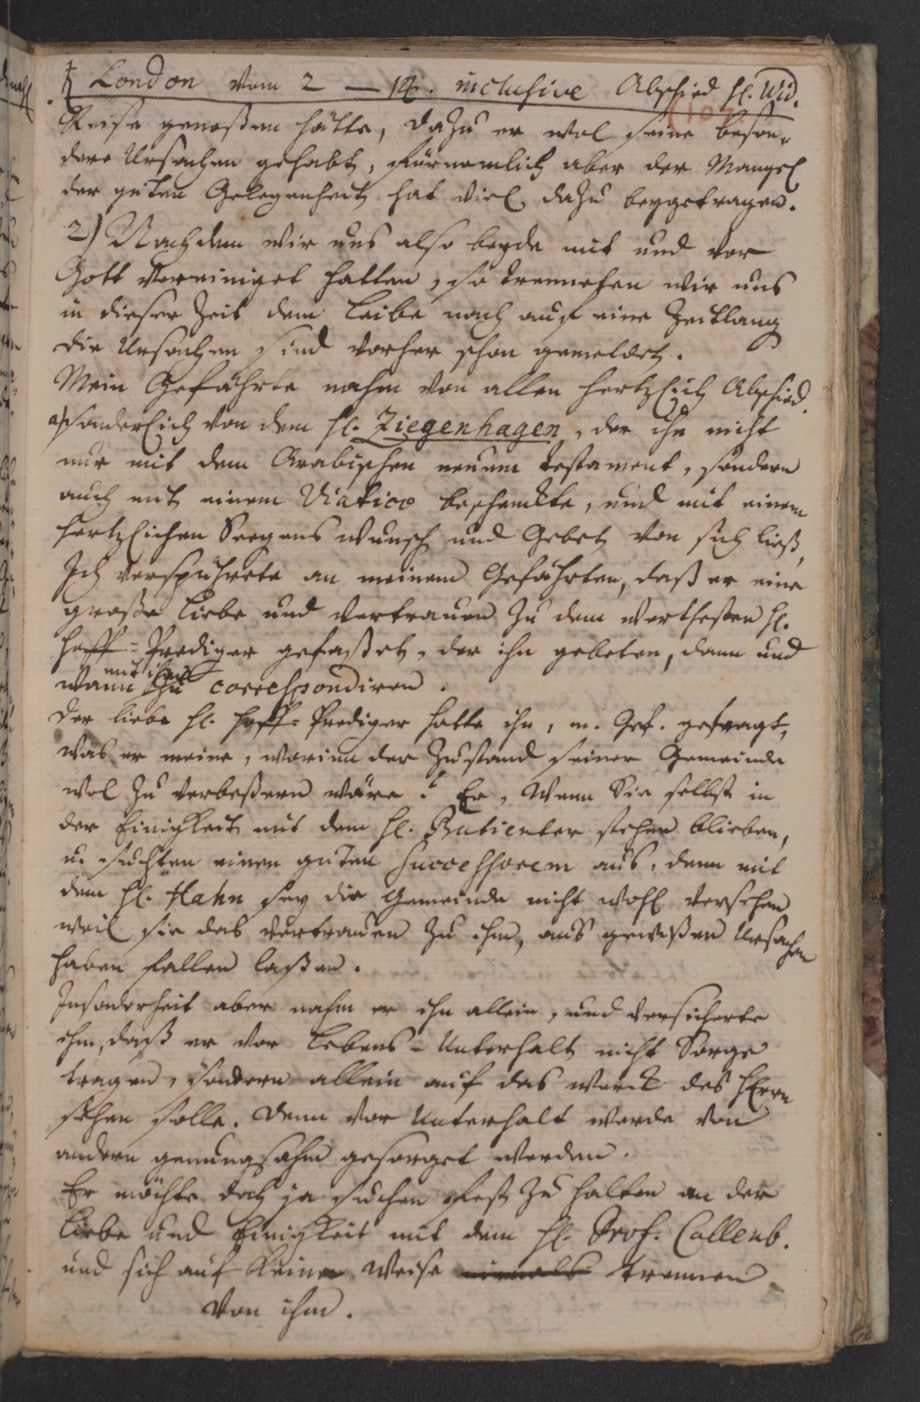 London vom 2 — 14. inclusive Abschied H. Wid.
(107)
Reise genoßen hätte, dazu er wol seine beson-
dere Ursachen gehabt, fürnemlich aber der Mangel
der guten Gelegenheit hat viel dazu beygetragen.
2) Nachdem wir uns also beyde mit und vor
Gott vereiniget hatten, so trenneten wir uns
in dieser Zeit dem Leibe nach auf eine Zeitlang
die Ursachen sind vorher schon gemeldet.
Mein Gefährte nahm von allen hertzlich Abschied
a) sonderlich von dem H. Ziegenhagen, der ihn nicht
nur mit dem Arabischen neuen Testament, sondern
auch mit einem Viatico beschenckte, und mit einem
hertzlichen Seegens wunsch und Gebet von sich ließ,
Ich verspührete an meinem Gefährten, daß er eine
große Liebe und Vertrauen zu dem werthesten H.
Hoff-Prediger gefaßet, der ihn gebeten, dann und
wann mit ihm zu correspondiren.
Der liebe H. Hoff-Prediger hatte ihn, m. Gef. gefragt,
was er meine, worinn der Zustand seiner Gemeinde
wol zu verbeßern wäre? Er, Wenn Sie selbst in
der Einigkeit mit dem H. Butienter stehen blieben,
u. suchten einen guten Successorem aus, denn mit
dem H. Hahn sey die Gemeinde nicht wohl versehen
weil sie das Vertrauen zu ihm, aus gewißen Ursachen
haben fallen laßen.
Insonderheit aber nahm er ihn allein, und versicherte
ihm, daß er vor Lebens-Unterhalt nicht Sorge
tragen, sondern allein auf das Werck des HErrn
sehen solle. Denn vor Unterhalt werde von
andern genungsahm gesorget werden.
Er möchte doch ja suchen fest zu halten an der
Liebe und Einigkeit mit dem H. Prof. Callenb.
und sich auf keine Weise trennen
von ihm.